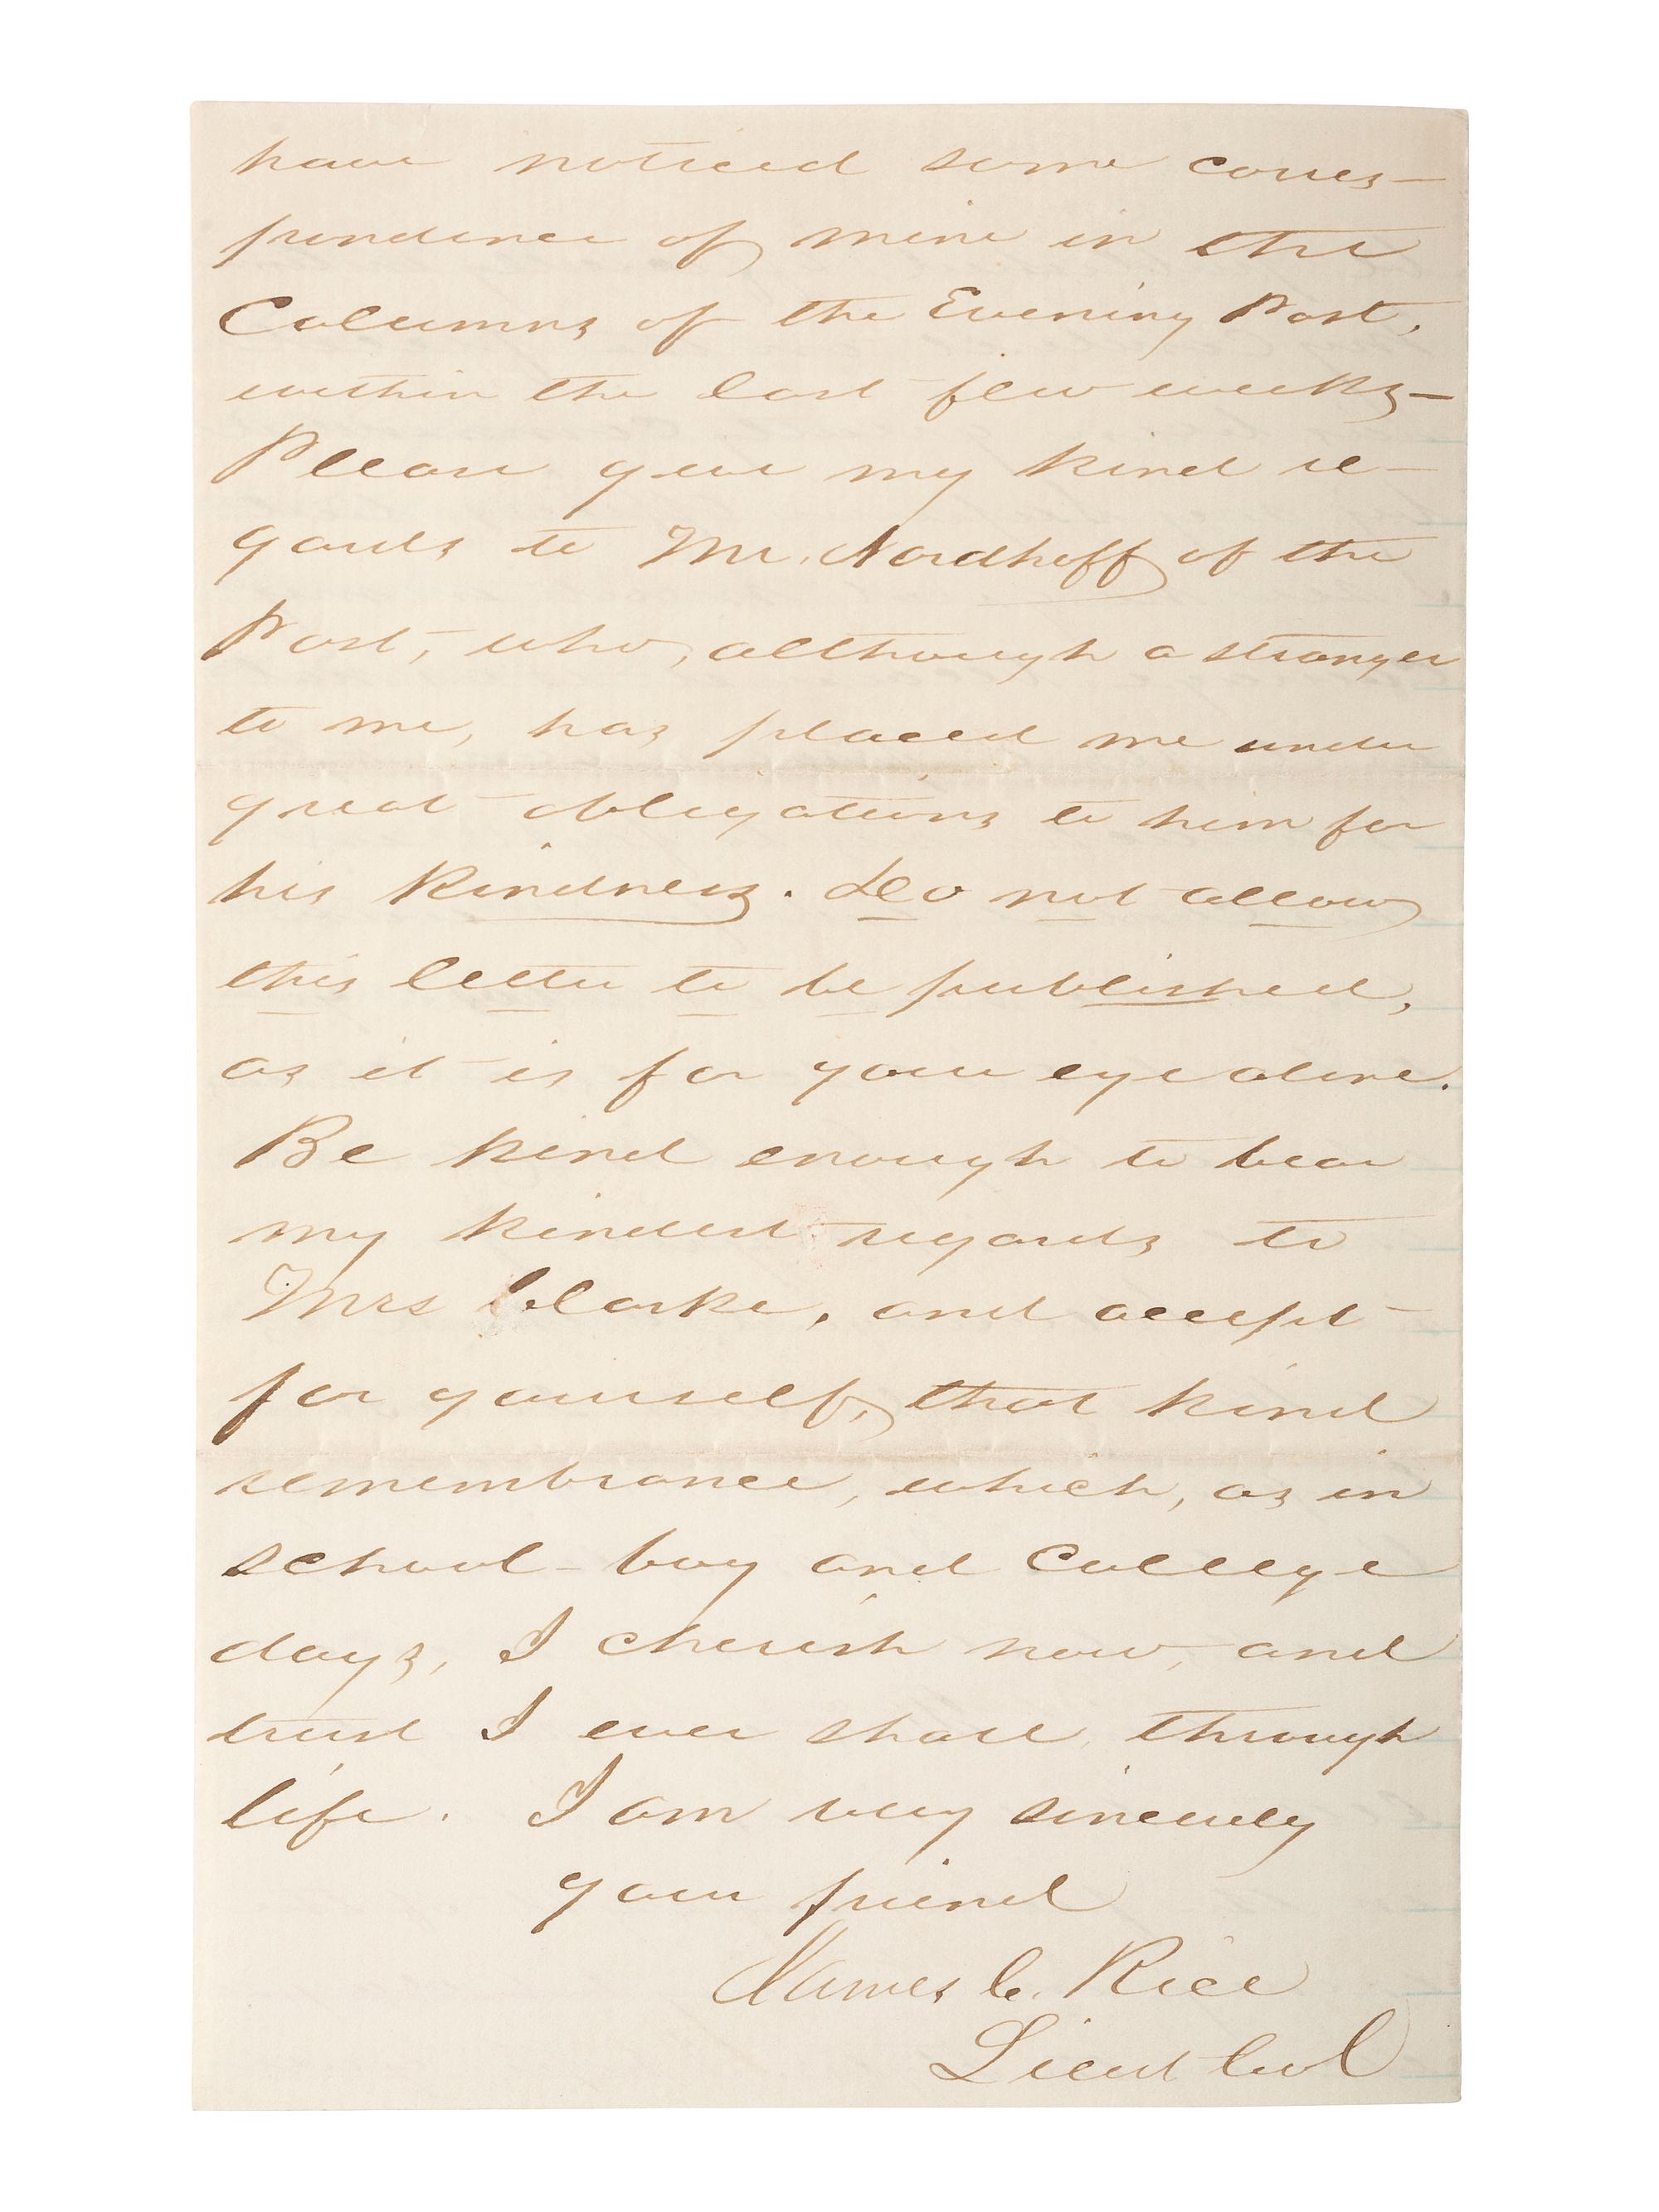 have noticed some corres-
pondence of mine in the
Columns of the Evening Post,
within the last few weeks—
Please give my kind re-
gards to Mr. Nordhoff of the
Post, who, although a stranger
to me, has placed me under
great obligations to him for
his kindness. Do not allow
this letter to be published,
as it is for your eye alone.
Be kind enough to bear
my kindest regards to
Mrs Clarke, and accept
for yourself, that kind
remembrance, which, as in
school-boy and College
days, I cherish now, and
trust I ever shall, through
life. I am very sincerely
your friend
James C. Rice
Lieut Col